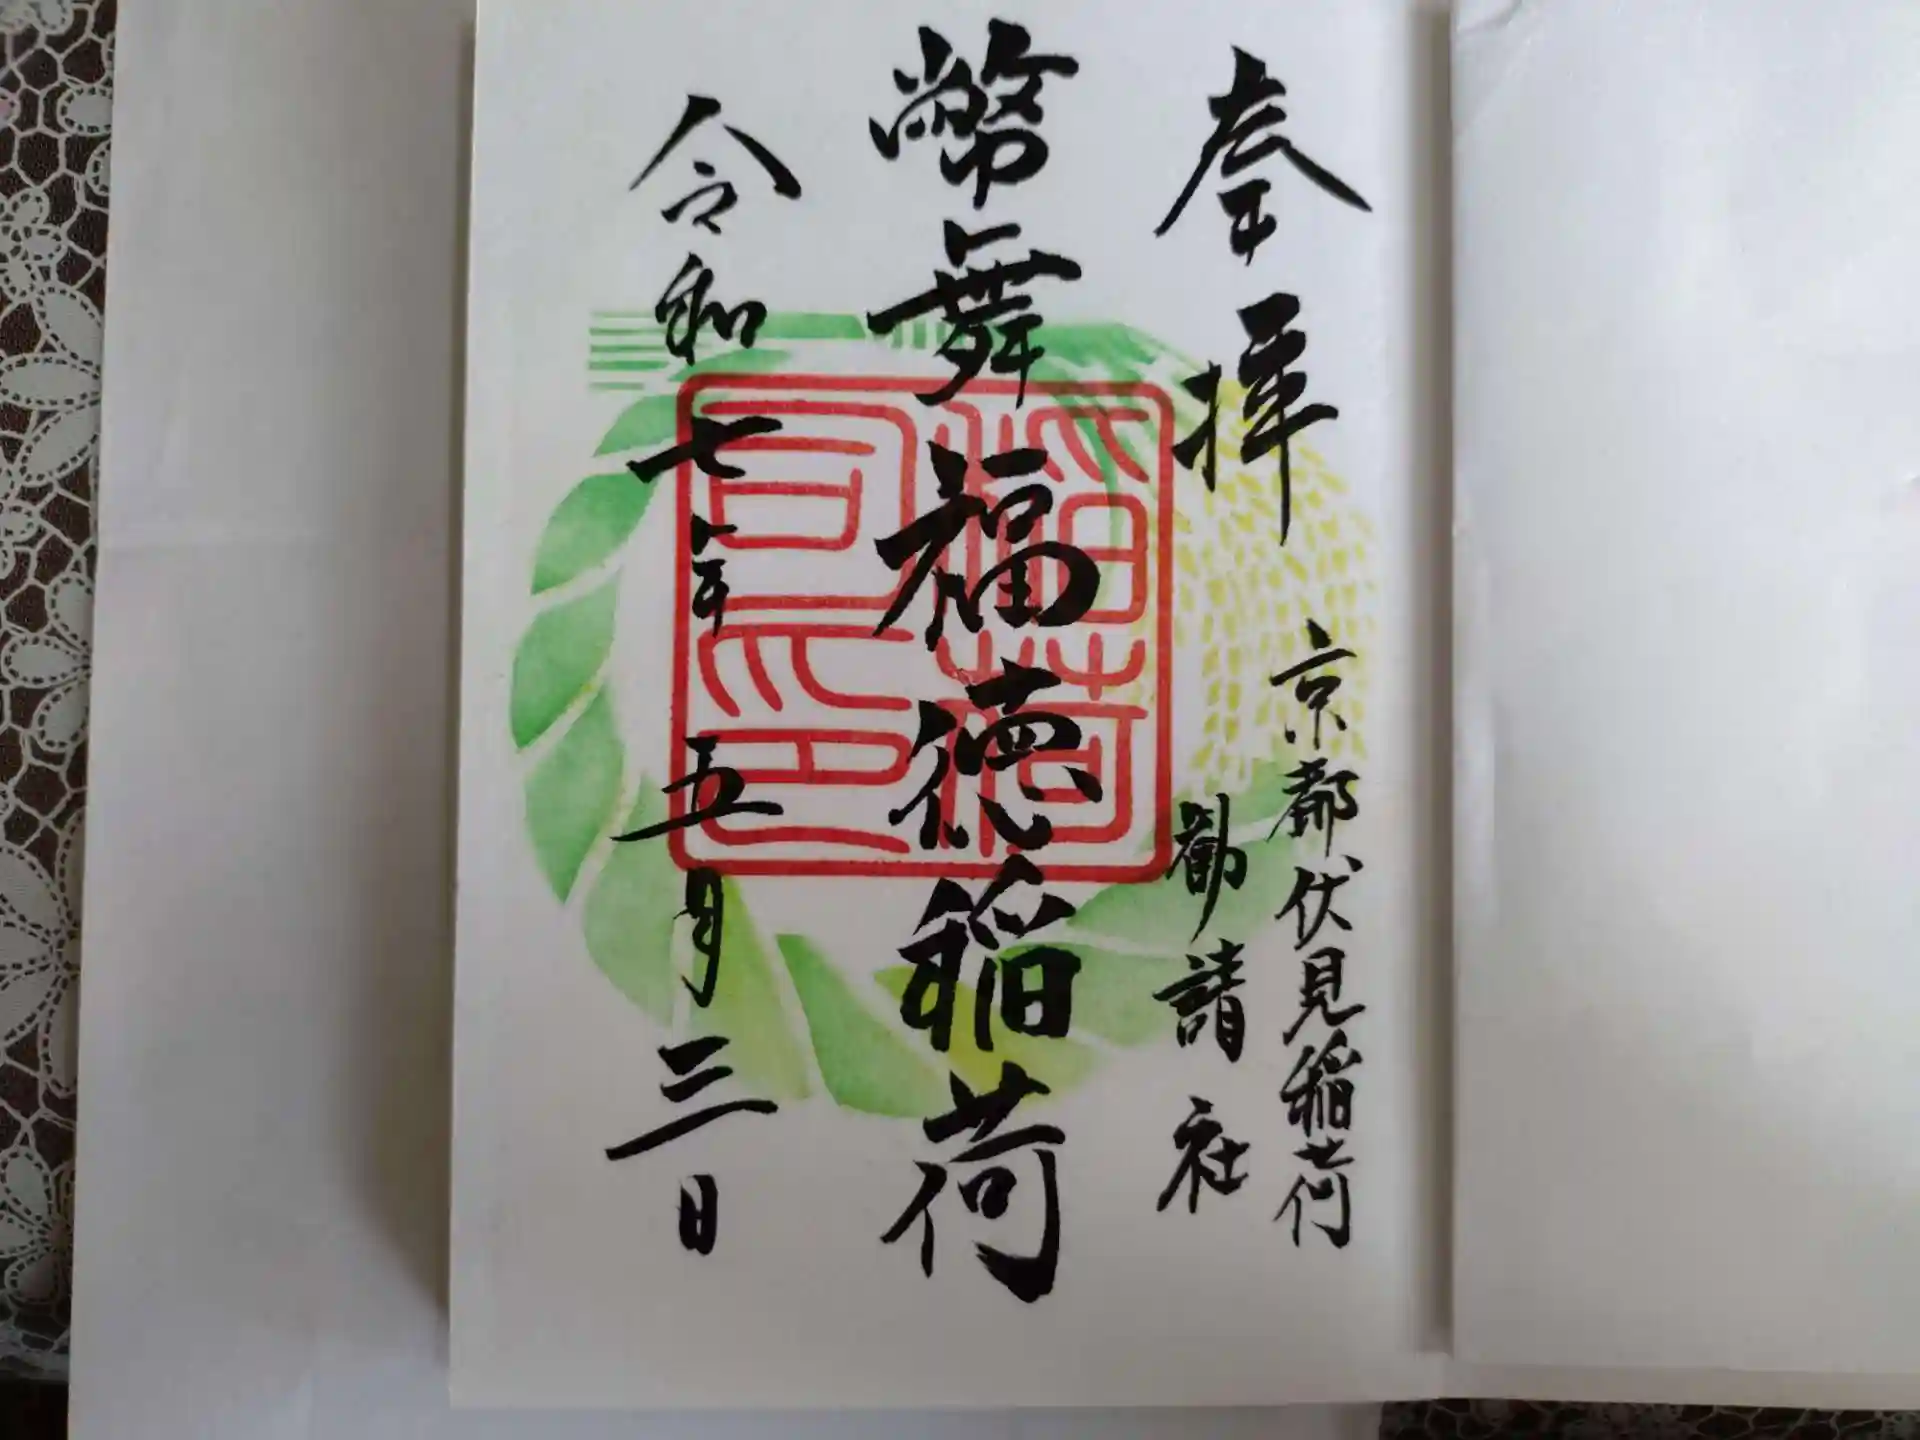 奉拝
京都伏見稲荷
勧請社
幣舞福徳稲荷
稲荷
司印
令和七年五月三日